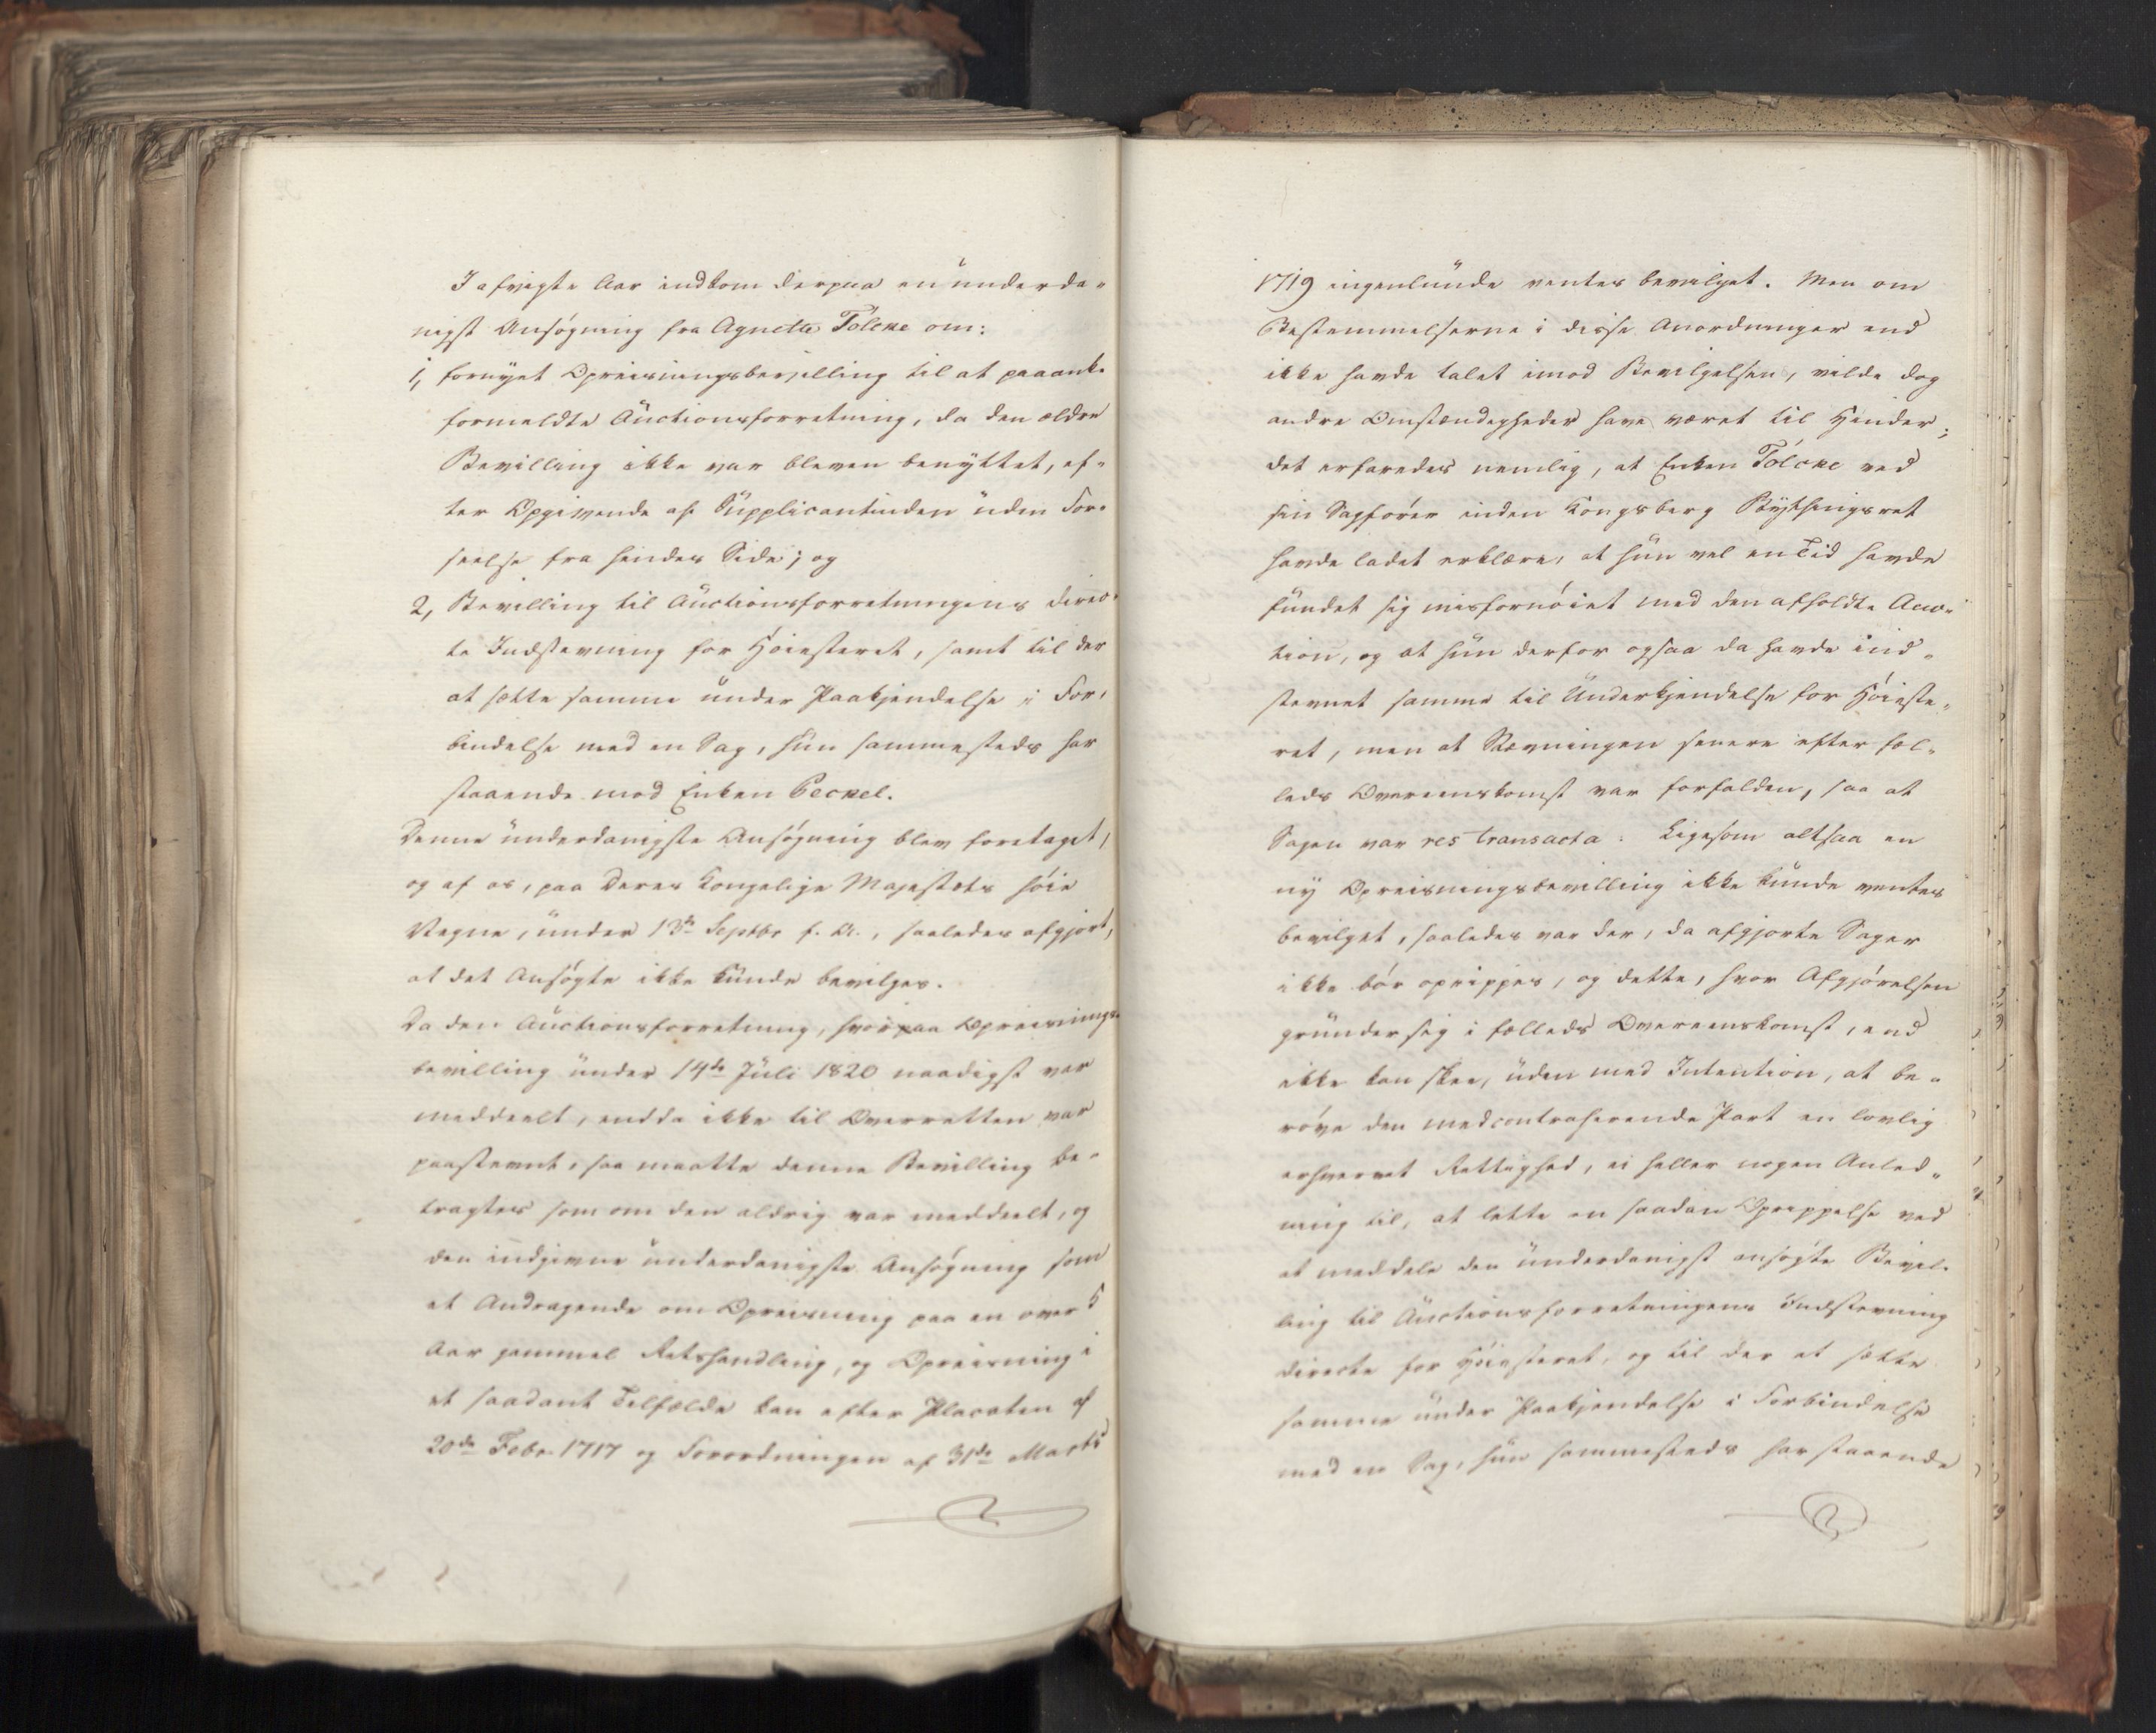 I afvigte Aar indkom derpaa en underda-
nigst Ansøgning fra Agnette Tolcke om:
1, fornyet Opreisningsbevilling til at paaanke
formeldte Auctionsforretning, da den ældre
Bevilling ikke var bleven benyttet, ef-
ter Opgivende af Supplicantinden uden For-
seelse fra hendes Side; og
2, Bevilling til Auctionsforretningens direc-
te Indstevning for Høiesteret, samt til der
at sætte samme under Paakjendelse i For-
bindelse med en Sag, hun sammesteds har
staaende mod Enken Peckel.
Denne underdanigste Ansøgning blev foretaget,
og af os, paa Deres Kongelige Majestæts høie
Vegne, under 13de Septbr f. A., saaledes afgjort,
at det Ansøgte ikke kunde bevilges.
Da den Auctionsforretning, hvorpaa Opreisnings-
bevilling under 14de Juli 1820 naadigst var
meddeelt, endda ikke til Overretten var
paastevnt, saa maatte denne Bevilling be-
tragtes som om den aldrig var meddeelt, og
den indgivne underdanigste Ansøgning som
et Andragende om Opreisning paa en over 5
Aar gammel Retshandling, og Opreisning i
et saadant Tilfælde kan efter Placaten af
20de Febr. 1717 og Forordningen af 31de Marts
1719 ingenlunde ventes bevilget. Men om
Bestemmelserne i disse Anordninger end
ikke havde talet imod Bevilgelsen, vilde dog
andre Omstændigheder have været til Hinder;
det erfaredes nemlig, at Enken Tölcke ved
sin Sagfører inden Kongsberg Bythingsret
havde ladet erklære, at hun vel en Tid havde
fundet sig misfornøiet med den afholdte Auc-
tion, og at hun derfor ogsaa da havde ind-
stevnet samme til Underkjendelse for Høieste-
ret, men at Stævningen senere efter fæl-
leds Overeenskomst var forfalden, saa at
Sagen var res transacta. Ligesom altsaa en
ny Opreisningsbevilling ikke kunde ventes
bevilget, saaledes var der, da afgjorte Sager
ikke bør oprippes, og dette, hvor Afgjørelsen
grunder sig i fælleds Overeenskomst, end
ikke kan skee, uden med Intention, at be-
røve den medcontraherende Part en lovlig
erhvervet Rettighed, ei heller nogen Anled-
ning til, at lette en saadan Oprippelse ved
at meddele den underdanigst ansøgte Bevil-
ling til Auctionsforretningens Indstevning
directe for Høiesteret, og til der at sætte
samme under Paakjendelse i Forbindelse
med en Sag, hun sammesteds har staaende